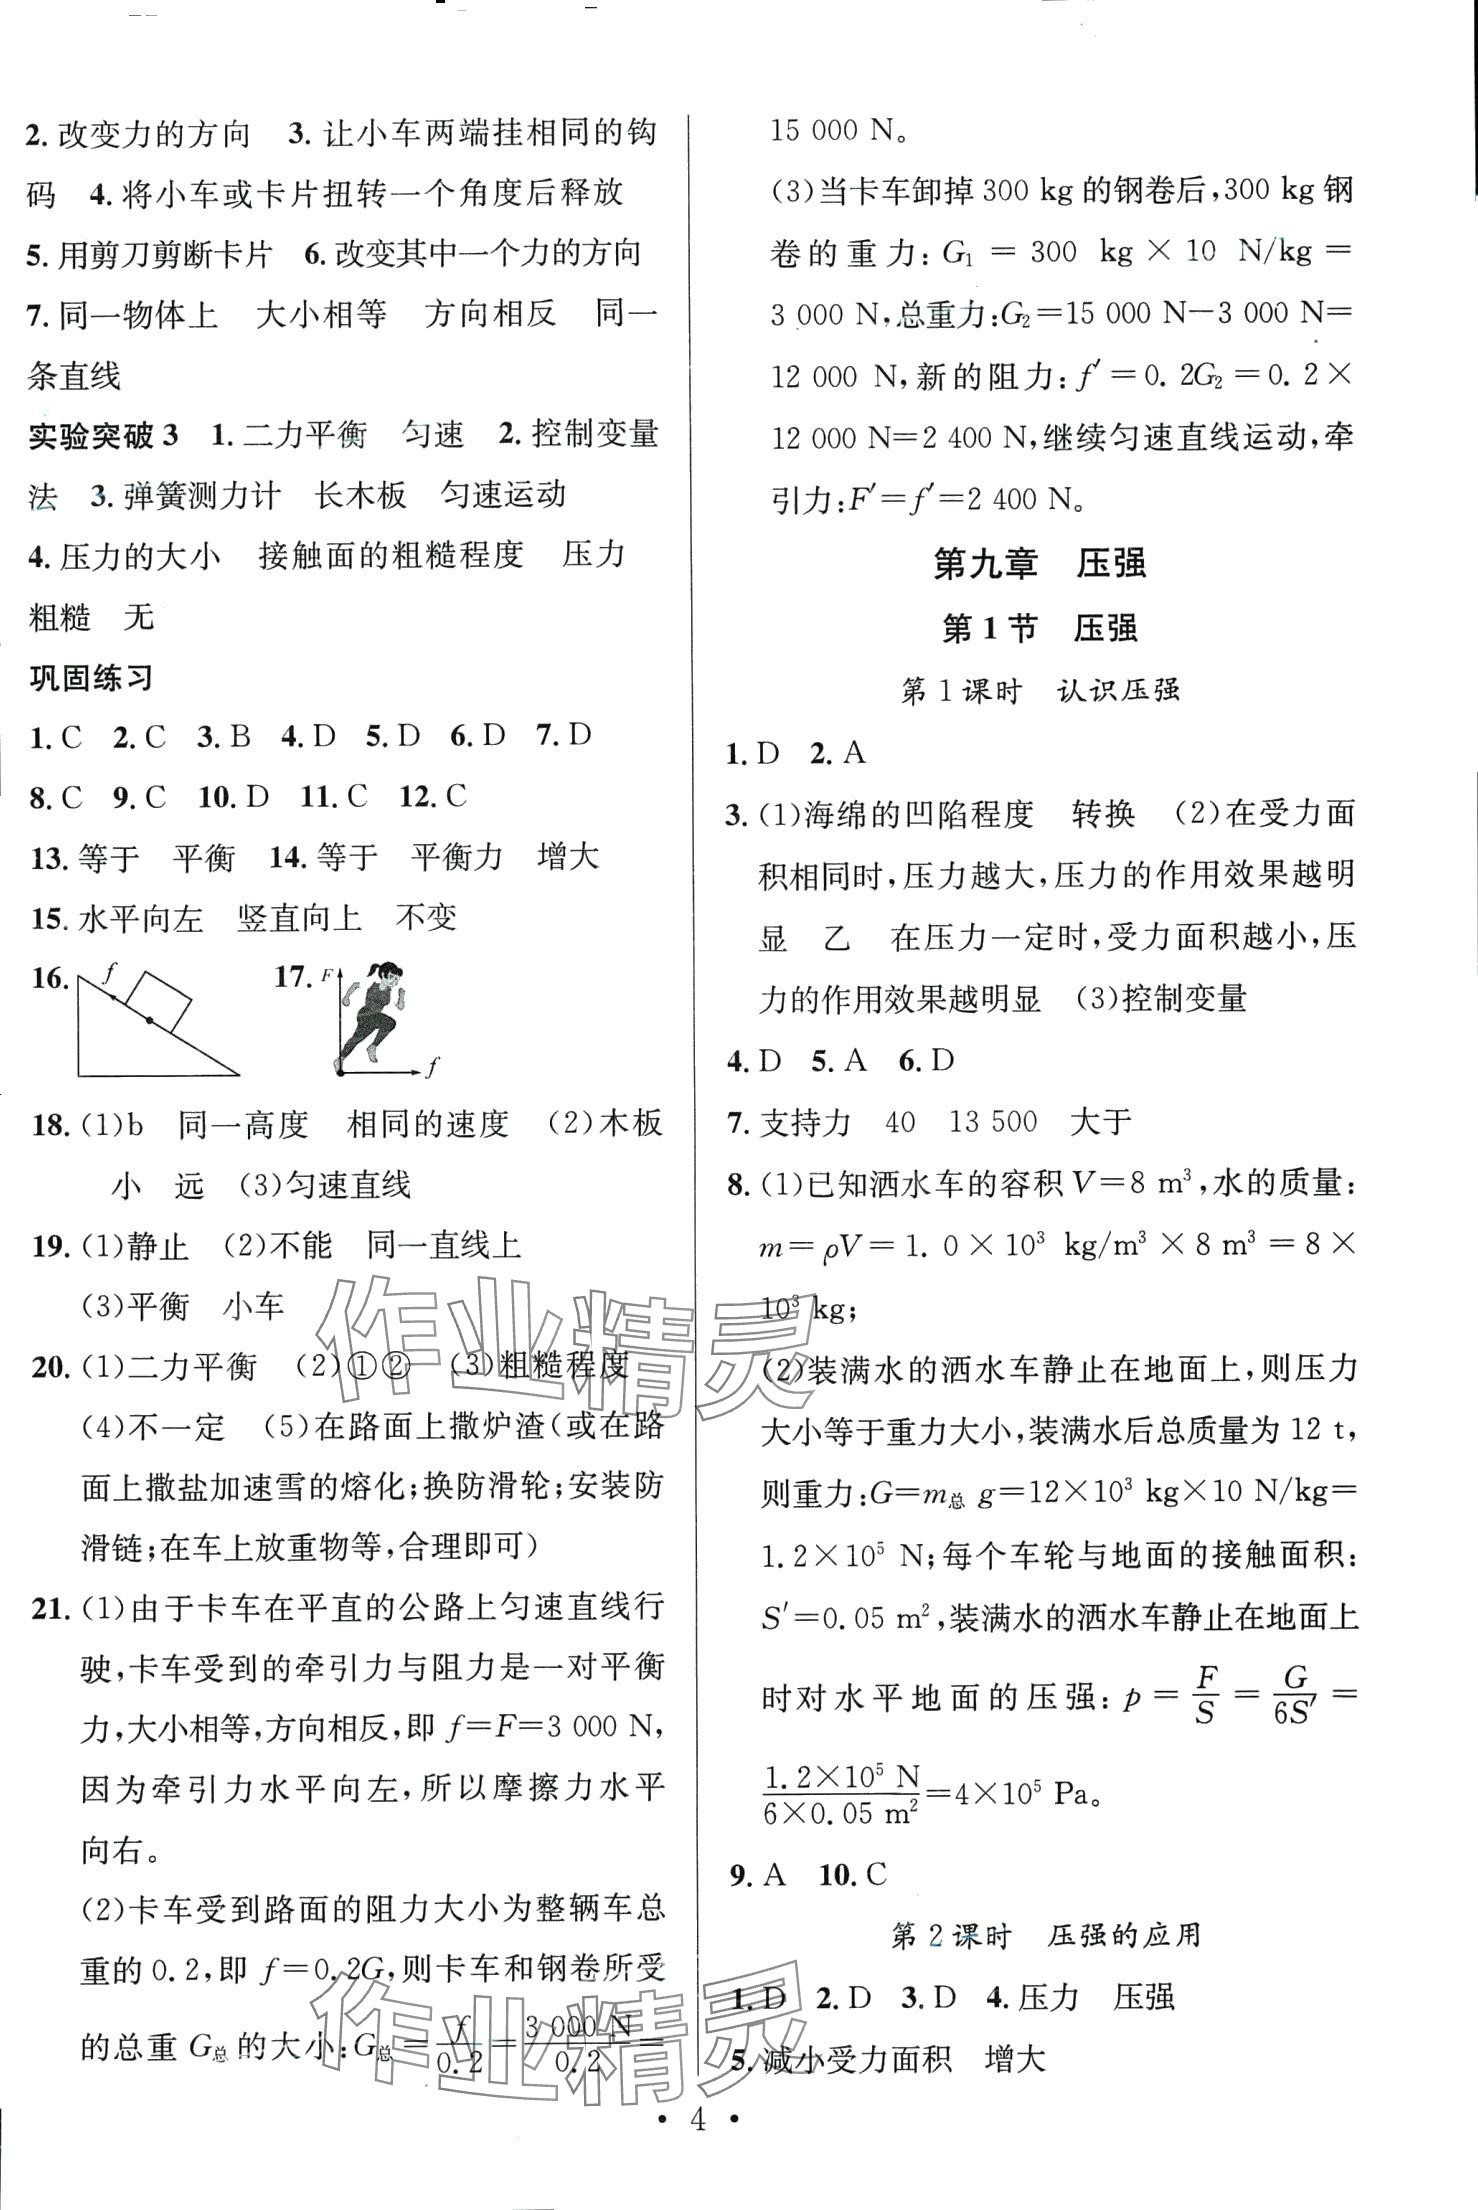 2. 改变力的方向　3. 让小车两端挂相同的钩
码　4. 将小车或卡片扭转一个角度后释放
5. 用剪刀剪断卡片　6. 改变其中一个力的方向
7. 同一物体上　大小相等　方向相反　同一
条直线
实验突破 3　1. 二力平衡　匀速　2. 控制变量
法　3. 弹簧测力计　长木板　匀速运动
4. 压力的大小　接触面的粗糙程度　压力
粗糙　无
巩固练习
1. C　2. C　3. B　4. D　5. D　6. D　7. D
8. C　9. C　10. D　11. C　12. C
13. 等于　平衡　14. 等于　平衡力　增大
15. 水平向左　竖直向上　不变
16. f　17. F f
18. (1)b　同一高度　相同的速度　(2)木板
小　远　(3)匀速直线
19. (1)静止　(2)不能　同一直线上
(3)平衡　小车
20. (1)二力平衡　(2)①②　(3)粗糙程度
(4)不一定　(5)在路面上撒炉渣(或在路
面上撒盐加速雪的熔化;换防滑轮;安装防
滑链;在车上放重物等,合理即可)
21. (1)由于卡车在平直的公路上匀速直线行
驶,卡车受到的牵引力与阻力是一对平衡
力,大小相等,方向相反,即 f=F=3 000 N,
因为牵引力水平向左,所以摩擦力水平
向右。
(2)卡车受到路面的阻力大小为整辆车总
重的 0.2,即 f=0.2G,则卡车和钢卷所受
的总重 G总 的大小:G总=f/0.2=3 000 N/0.2=
15 000 N。
(3)当卡车卸掉 300 kg 的钢卷后,300 kg 钢
卷的重力:G₁=300 kg×10 N/kg=
3 000 N,总重力:G₂=15 000 N-3 000 N=
12 000 N,新的阻力:f′=0.2G₂=0.2×
12 000 N=2 400 N,继续匀速直线运动,牵
引力:F′=f′=2 400 N。
第九章　压强
第 1 节　压强
第 1 课时　认识压强
1. D　2. A
3. (1)海绵的凹陷程度　转换　(2)在受力面
积相同时,压力越大,压力的作用效果越明
显　乙　在压力一定时,受力面积越小,压
力的作用效果越明显　(3)控制变量
4. D　5. A　6. D
7. 支持力　40　13 500　大于
8. (1)已知洒水车的容积 V=8 m³,水的质量:
m=ρV=1.0×10³ kg/m³×8 m³=8×
10³ kg;
(2)装满水的洒水车静止在地面上,则压力
大小等于重力大小,装满水后总质量为 12 t,
则重力:G=m总 g=12×10³ kg×10 N/kg=
1.2×10⁵ N;每个车轮与地面的接触面积:
S′=0.05 m²,装满水的洒水车静止在地面上
时对水平地面的压强:p=F/S=G/6S′=
1.2×10⁵ N/6×0.05 m²=4×10⁵ Pa。
9. A　10. C
第 2 课时　压强的应用
1. D　2. D　3. D　4. 压力　压强
5. 减小受力面积　增大
· 4 ·
作业精灵
作业精灵